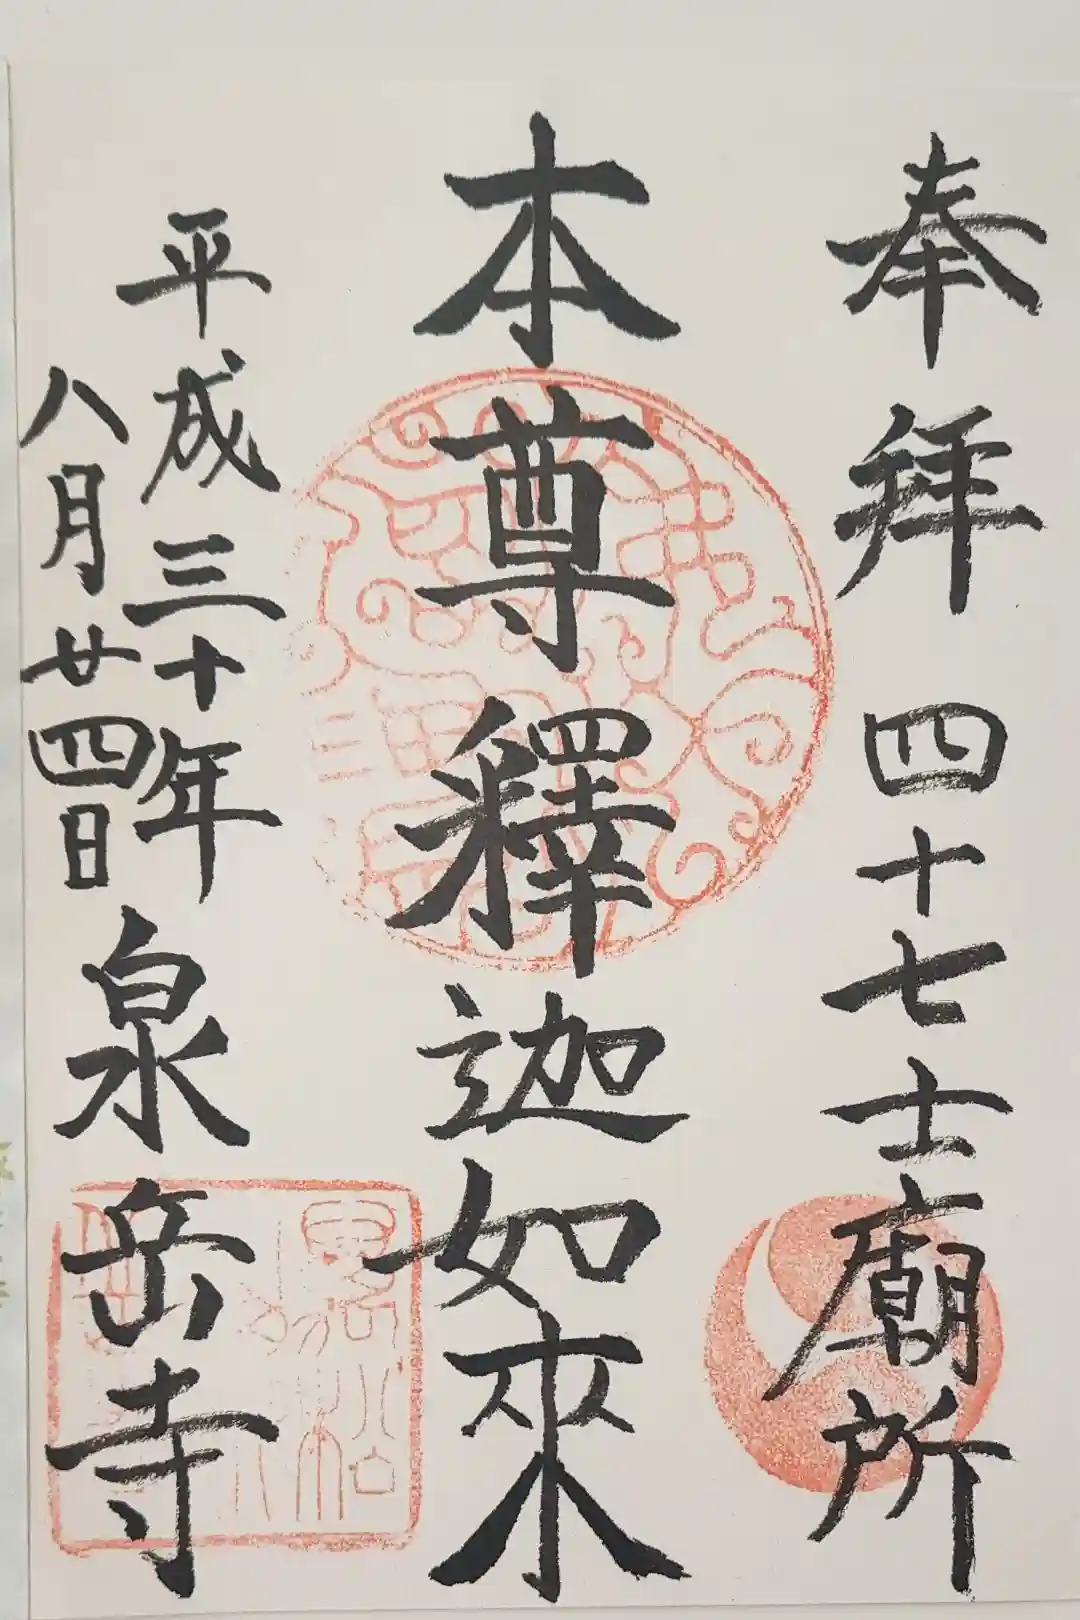 奉拜 四十七士廟所
本尊釋迦如來
平成三十年
八月廿四日
泉岳寺